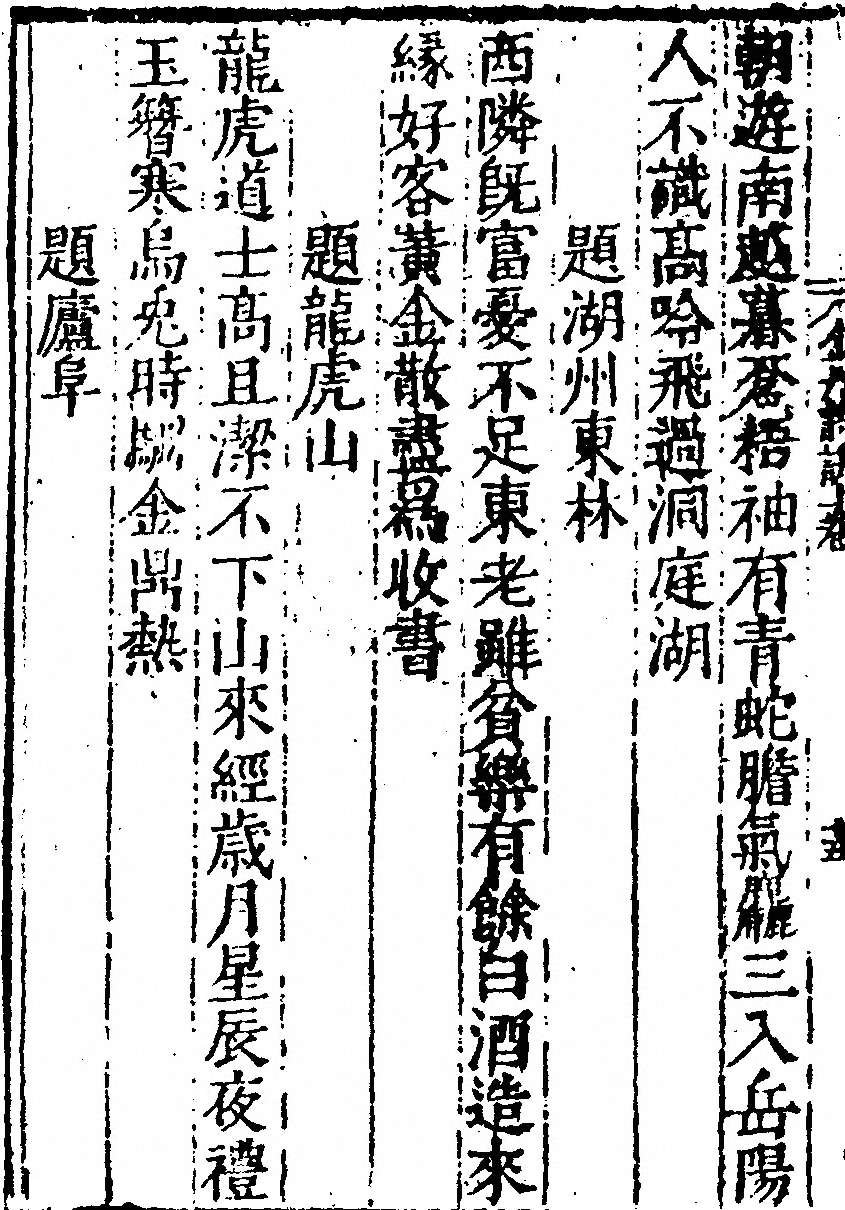 金丹詩訣卷
朝遊南越暮蒼梧袖有青蛇膽氣麤三入岳陽
人不識高吟飛過洞庭湖
題湖州東林
西隣既富憂不足東老雖貧樂有餘白酒造來
緣好客黃金散盡爲收書
題龍虎山
龍虎道士高且潔不下山來經歲月星辰夜禮
玉簪寒烏兔時金鼎熱
題廬阜